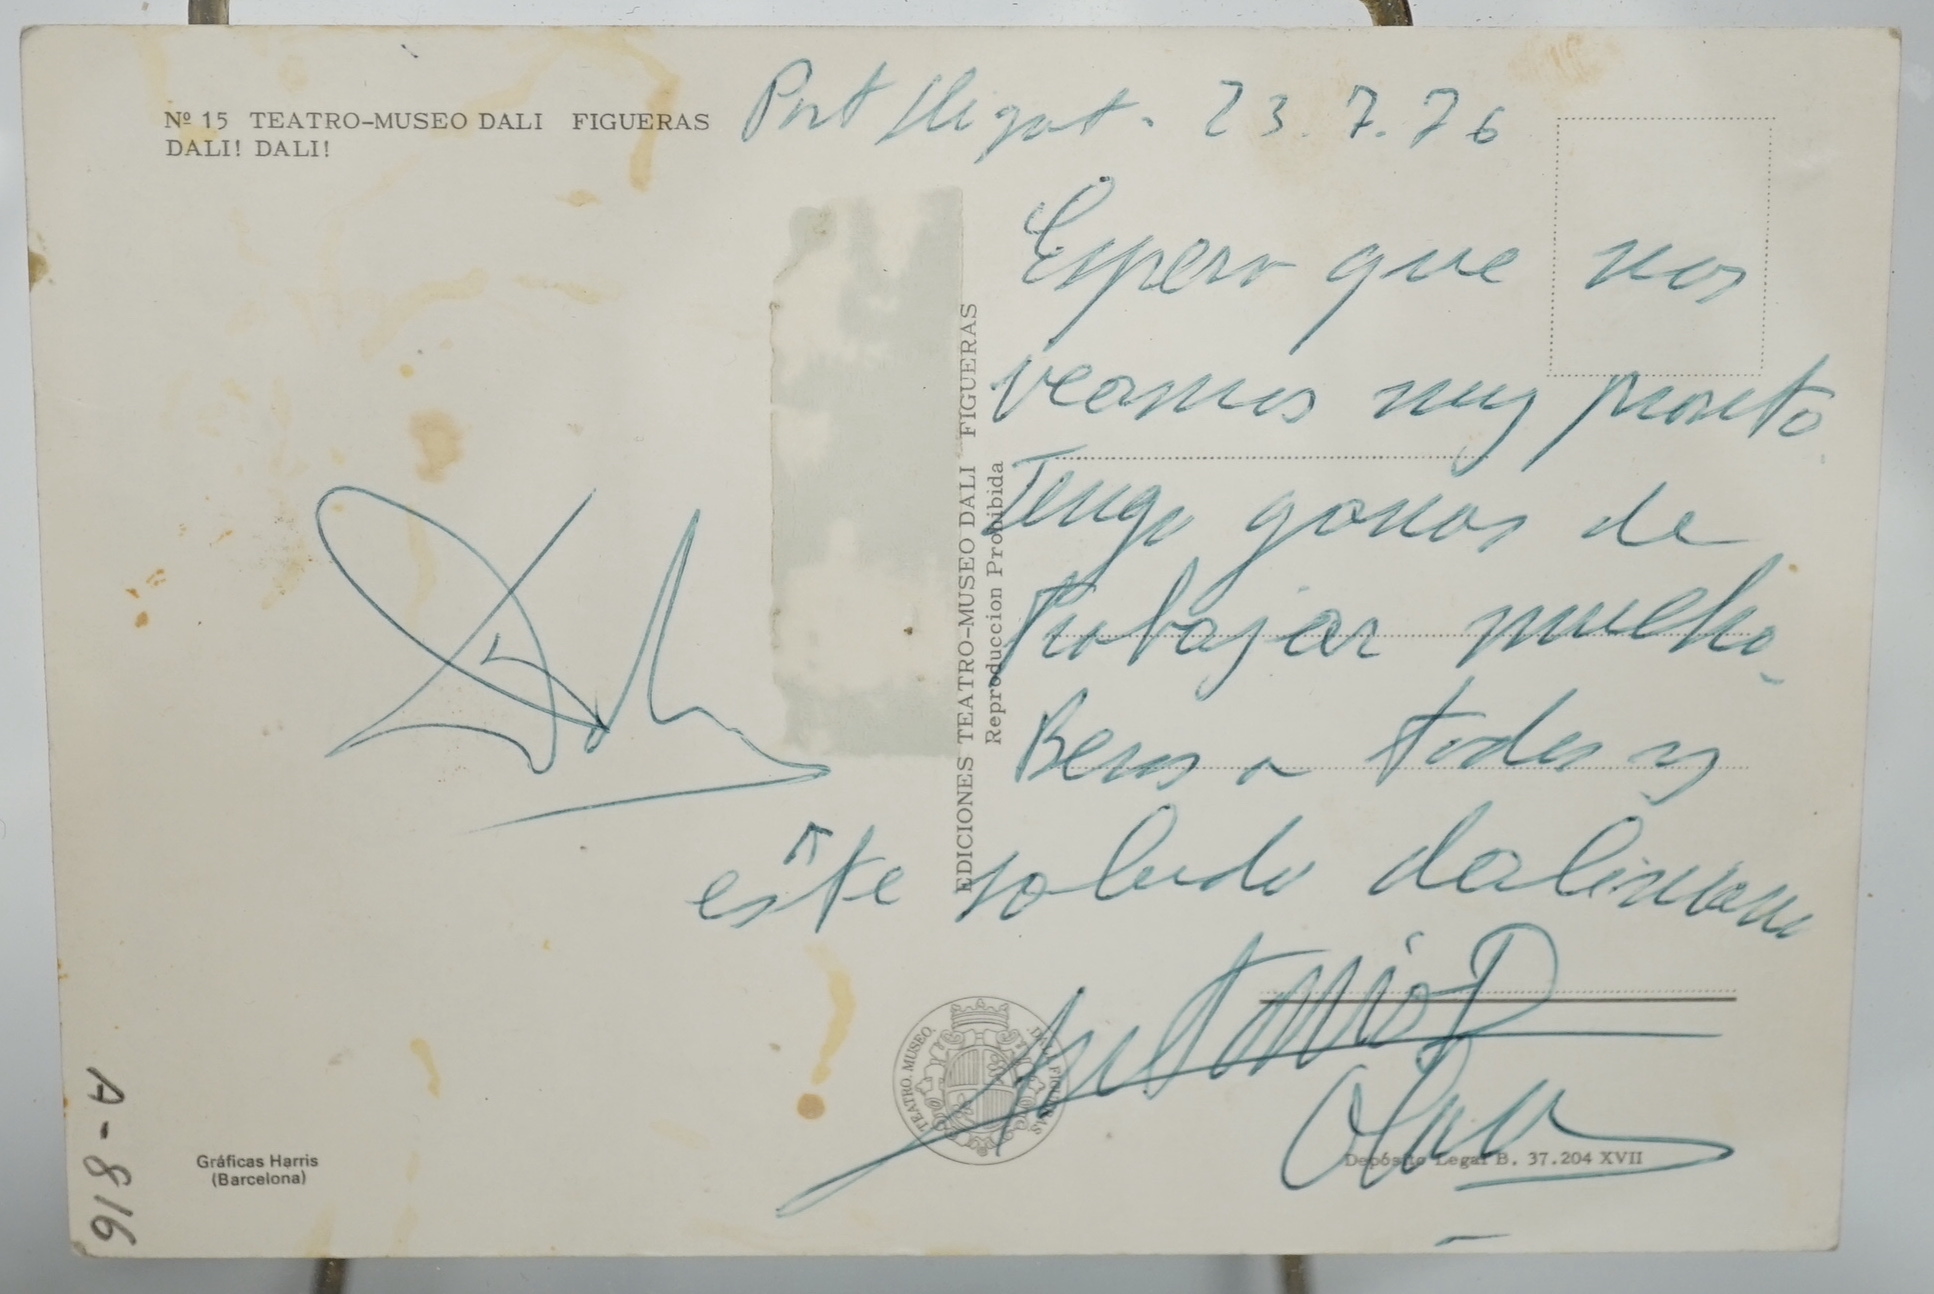 Nº 15 TEATRO-MUSEO DALI FIGUERAS
DALI! DALI!
Port Lligat. 23.7.76
Espero que nos
veamos muy pronto
Tengo ganas de
trabajar mucho.
Besos a todos y
este saludo daliniano
Antonio D
Olano
Dalí
EDICIONES TEATRO-MUSEO DALI FIGUERAS
Reproduccion Prohibida
TEATRO. MUSEO. DALI FIGUERAS
Gráficas Harris
(Barcelona)
Depósito Legal B. 37.204 XVII
A-816